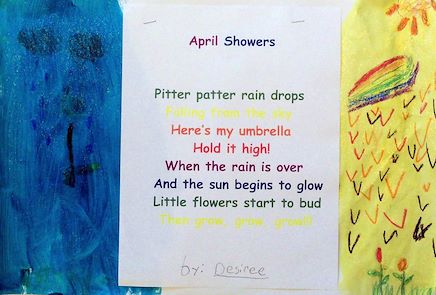 April Showers
Pitter patter rain drops
Falling from the sky
Here's my umbrella
Hold it high!
When the rain is over
And the sun begins to glow
Little flowers start to bud
Then grow, grow, grow!!!
by: Desiree